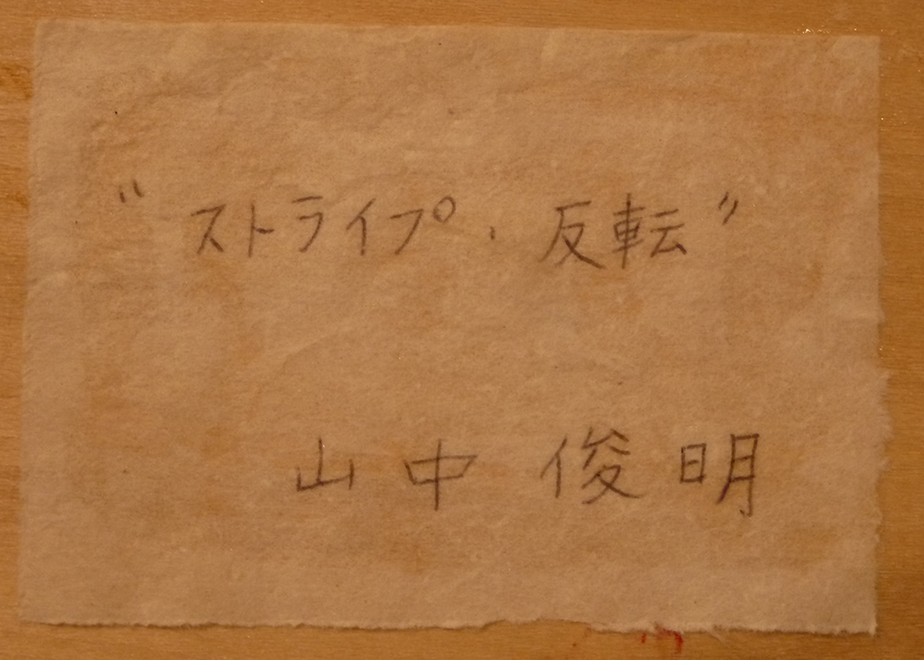 "ストライプ・反転"
山中 俊明